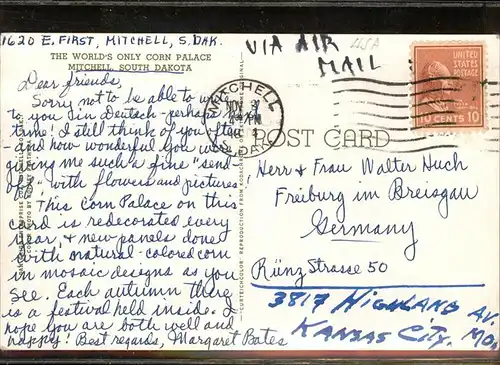 1620 E. First, Mitchell, S. Dak.
THE WORLD'S ONLY CORN PALACE
MITCHELL, SOUTH DAKOTA
VIA AIR
MAIL
USA
MITCHELL
NOV 8
PM
S. DAK.
UNITED
STATES
POSTAGE
10 CENTS 10
POST CARD
Dear friends,
Sorry not to be able to write
to you in Deutsch - perhaps next
time! I still think of you often
and how wonderful you were
giving me such a fine "send
off" with flowers and pictures.
This Corn Palace on this
card is redecorated every
year, & new panels done
with natural-colored corn
in mosaic designs as you
see. Each autumn there
is a festival held inside. I
hope you are both well and
happy! Best regards, Margaret Bates
"CURTEICHCOLOR" REPRODUCTION FROM KODACHROME
Herr & Frau Walter Huch
Freiburg im Breisgau
Germany
Rünz Strasse 50
3817 Highland Av.
Kansas City. Mo.